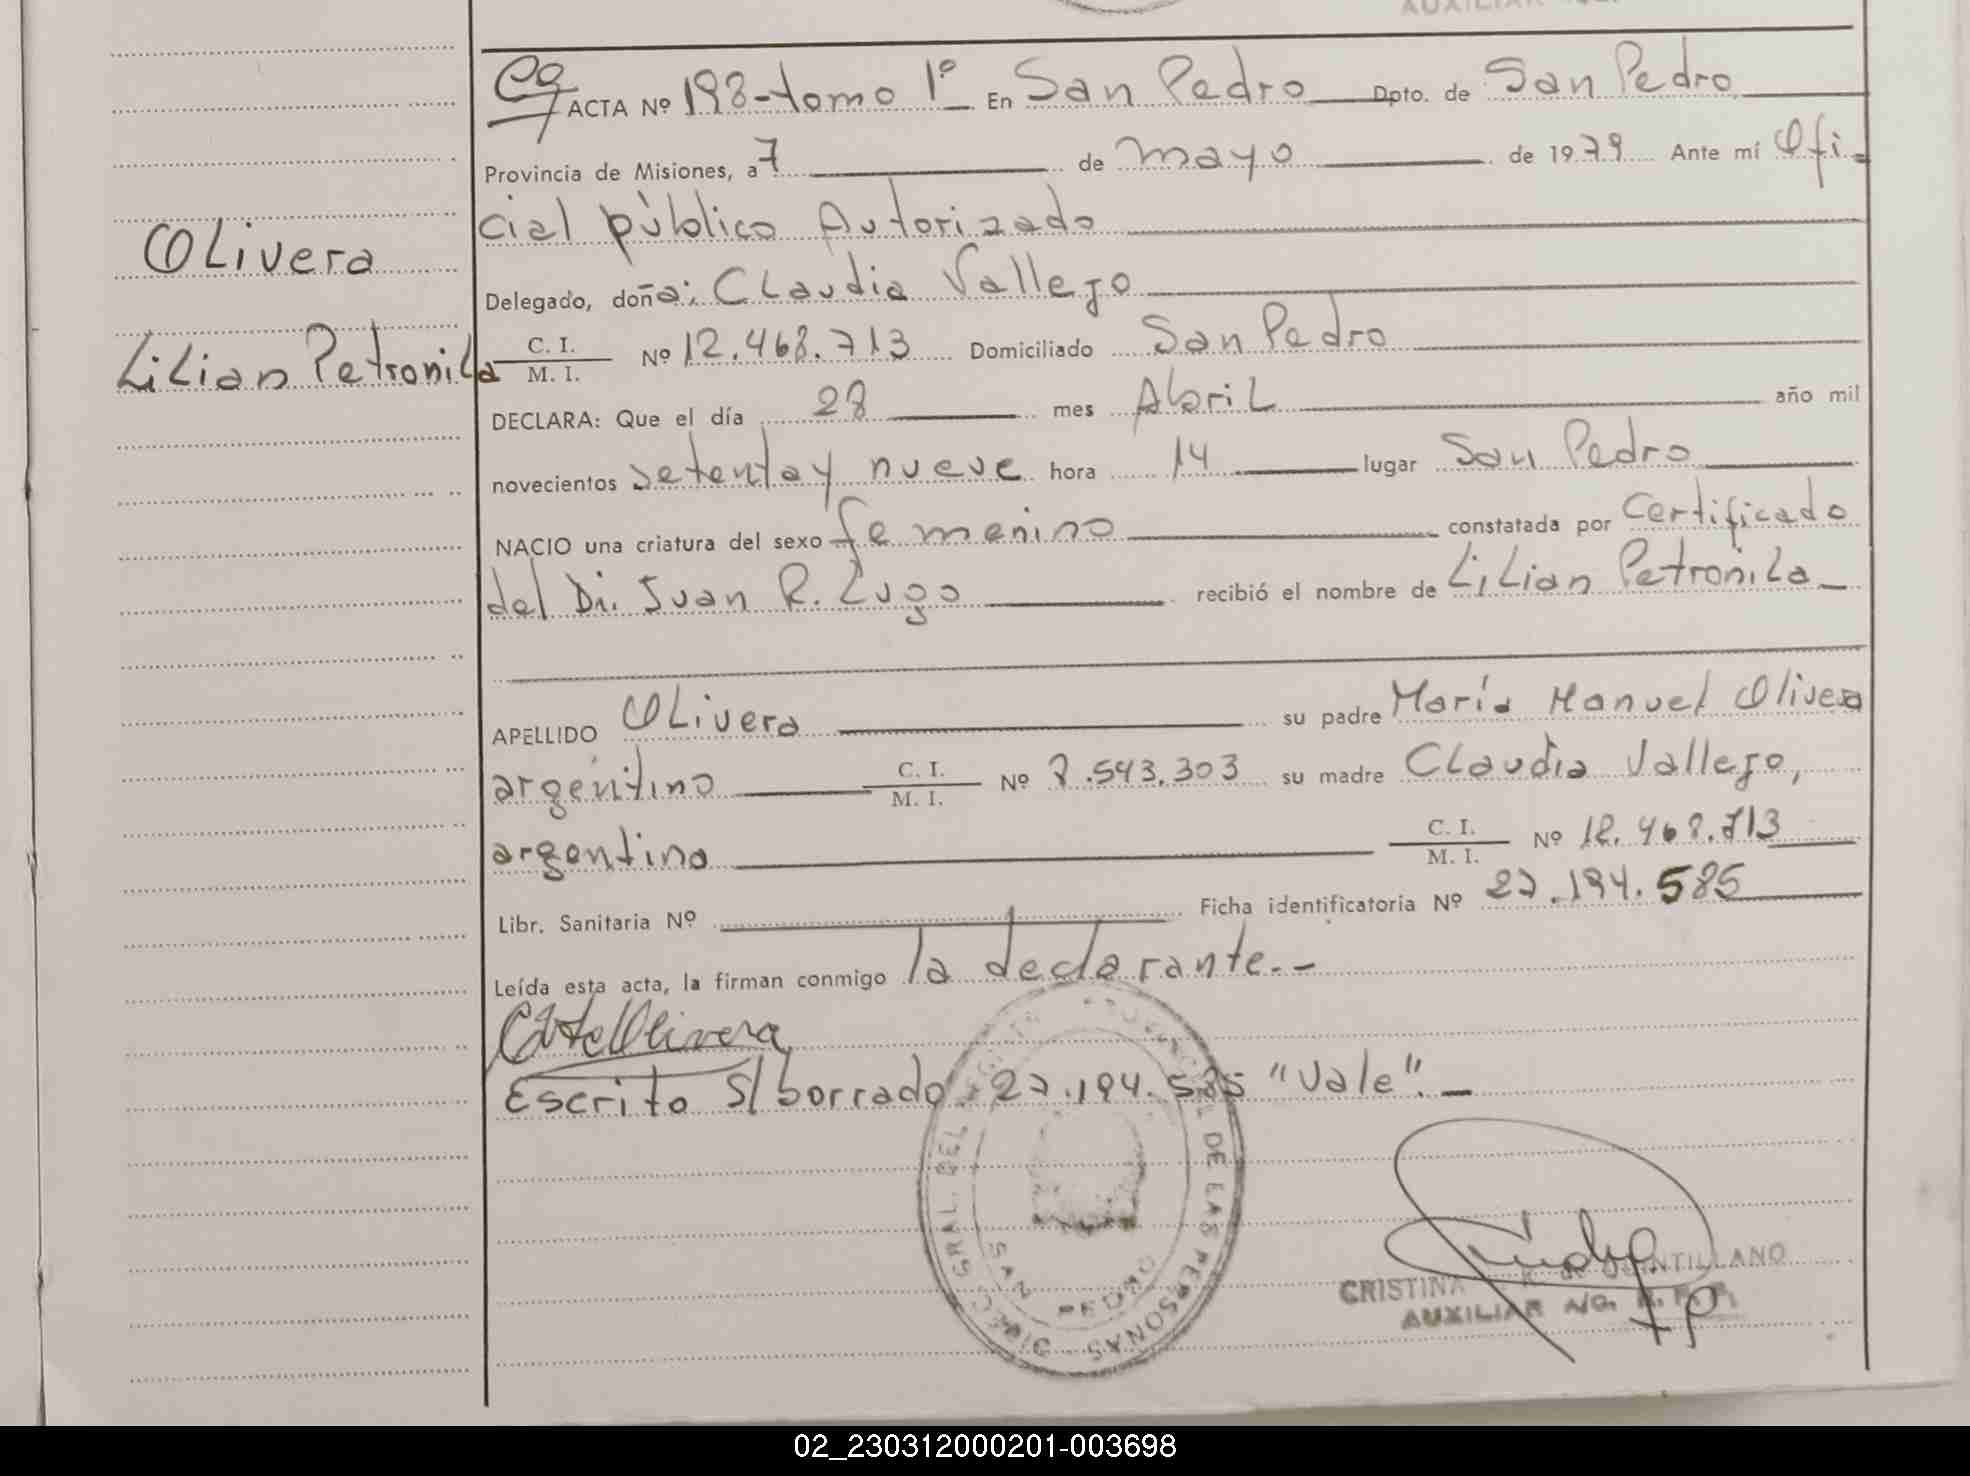 AUXILIAR
Cq ACTA Nº 198-tomo 1º En San Pedro Dpto. de San Pedro
Provincia de Misiones, a 7 de mayo de 1979 Ante mí Ofi-
cial pùblico Autorizado
Olivera
Delegado, doña: Claudia Vallejo
Lilian Petronila
C. I.
M. I. Nº 12.468.713 Domiciliado San Pedro
DECLARA: Que el día 28 mes Abril año mil
novecientos setenta y nueve hora 14 lugar San Pedro
NACIO una criatura del sexo femenino constatada por Certificado
del Dr. Juan R. Lugo recibió el nombre de Lilian Petronila
APELLIDO Olivera su padre María Manuel Olivera
argentino C. I.
M. I. Nº 7.543.303 su madre Claudia Vallejo,
argentina C. I.
M. I. Nº 12.468.713
Libr. Sanitaria Nº Ficha identificatoria Nº 27.194.585
Leída esta acta, la firman conmigo la declarante.-
Escrito S/ borrado 27.194.585 "Vale".-
DIREC. GRAL. DEL DE LAS PERSONAS
SAN PEDRO
CRISTINA QUINTILLANO
AUXILIAR
02_230312000201-003698